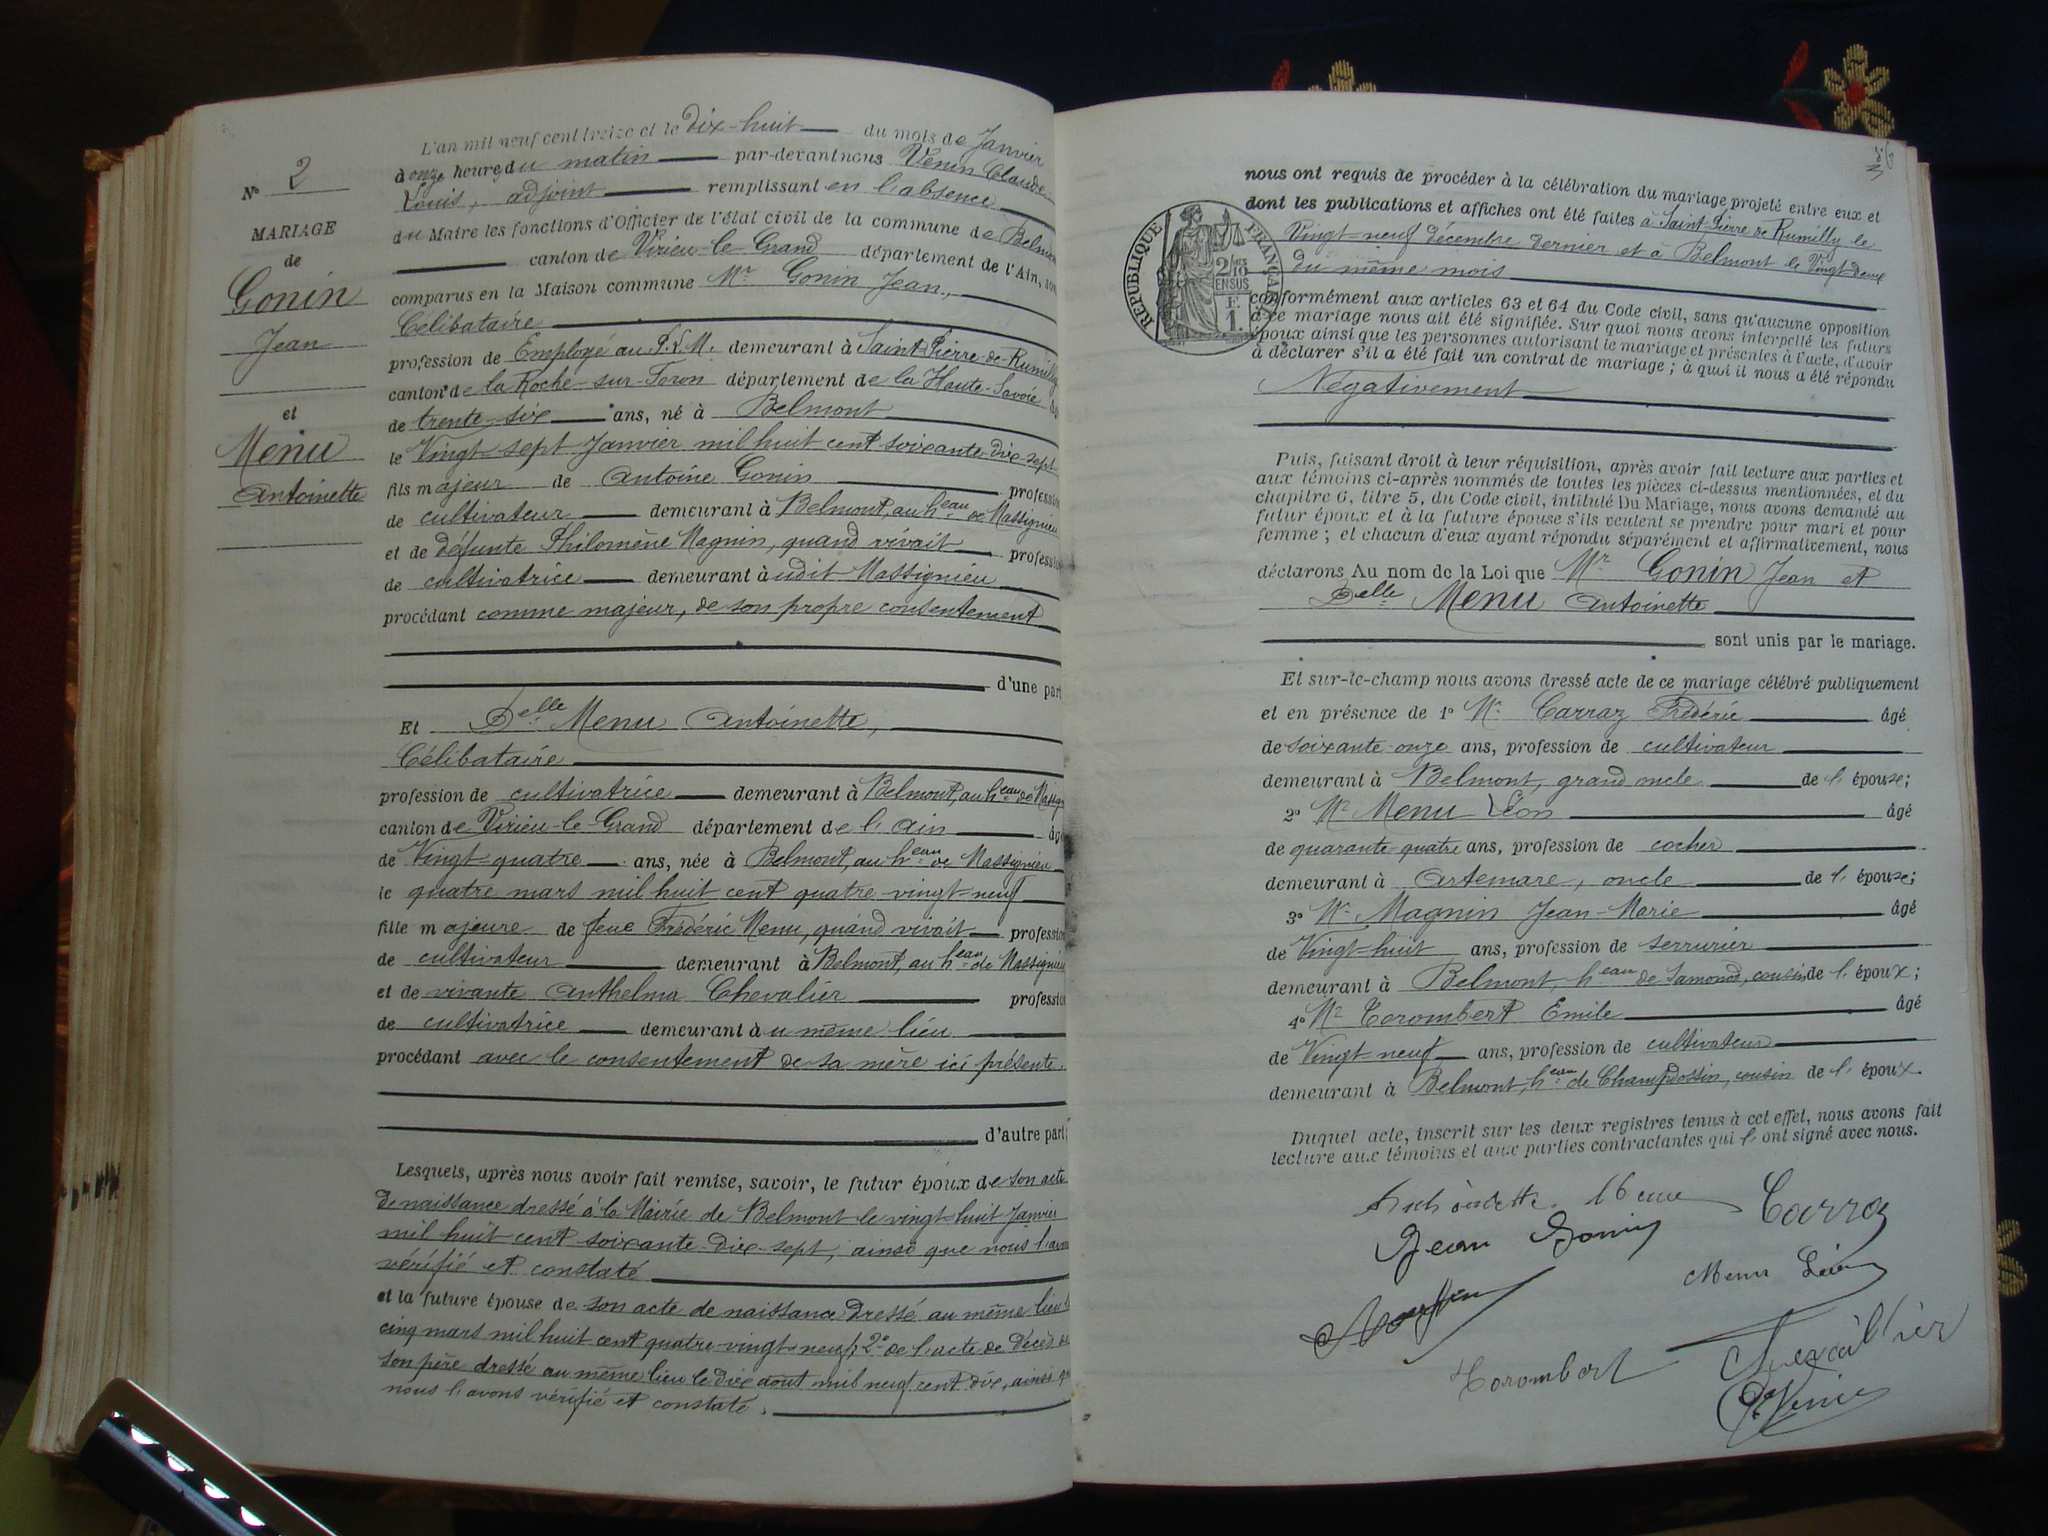 L'an mil neuf cent treize et le dix-huit du mois de Janvier
à onze heures du matin par-devant nous Venin Claude
Louis, adjoint remplissant en l'absence
du Maire les fonctions d'Officier de l'état civil de la commune de Belmont
canton de Virieu-le-Grand département de l'Ain, sont
comparus en la Maison commune Mr Gonin Jean,
Célibataire
profession de Employé au P.L.M. demeurant à Saint-Pierre-de-Rumilly
canton de la Roche-sur-Foron département de la Haute-Savoie âgé
de trente-six ans, né à Belmont
le Vingt-sept Janvier mil huit cent soixante-dix-sept
fils majeur de Antoine Gonin profession
de cultivateur demeurant à Belmont, au heau de Massignieu
et de défunte Philomène Magnin, quand vivait profession
de cultivatrice demeurant à udit Massignieu
procédant comme majeur, de son propre consentement
d'une part
Et Delle Menu Antoinette,
Célibataire
profession de cultivatrice demeurant à Belmont, au heau de Massign
canton de Virieu-le-Grand département de l'Ain âgé
de Vingt-quatre ans, née à Belmont, au heau de Massignieu
le quatre mars mil huit cent quatre-vingt-neuf
fille majeure de feue Frédéric Menu, quand vivait profession
de cultivateur demeurant à Belmont, au heau de Massignieu
et de vivante Anthelma Chevalier profession
de cultivatrice demeurant à u même lieu
procédant avec le consentement de sa mère ici présente.
d'autre part;
Lesquels, après nous avoir fait remise, savoir, le futur époux de son acte
de naissance dressé à la Mairie de Belmont le vingt-huit Janvier
mil huit cent soixante-dix-sept, ainsi que nous l'avons
vérifié et constaté
et la future épouse de son acte de naissance dressé au même lieu le
cinq mars mil huit cent quatre-vingt-neuf; 2° de l'acte de décès de
son père dressé au même lieu le dix août mil neuf cent dix, ainsi que
nous l'avons vérifié et constaté.
N° 2
MARIAGE
de
Gonin
Jean
et
Menu
Antoinette
nous ont requis de procéder à la célébration du mariage projeté entre eux et
dont les publications et affiches ont été faites à Saint-Pierre de Rumilly le
Vingt-neuf décembre dernier et à Belmont le Vingt-deux
du même mois
RÉPUBLIQUE FRANÇAISE
2/10
EN SUS
F.
1.
conformément aux articles 63 et 64 du Code civil, sans qu'aucune opposition
à ce mariage nous ait été signifiée. Sur quoi nous avons interpellé les futurs
époux ainsi que les personnes autorisant le mariage et présentes à l'acte, d'avoir
à déclarer s'il a été fait un contrat de mariage; à quoi il nous a été répondu
Négativement
Puis, faisant droit à leur réquisition, après avoir fait lecture aux parties et
aux témoins ci-après nommés de toutes les pièces ci-dessus mentionnées, et du
chapitre 6, titre 5, du Code civil, intitulé Du Mariage, nous avons demandé au
futur époux et à la future épouse s'ils veulent se prendre pour mari et pour
femme; et chacun d'eux ayant répondu séparément et affirmativement, nous
déclarons Au nom de la Loi que Mr Gonin Jean et
Delle Menu Antoinette
sont unis par le mariage.
Et sur-le-champ nous avons dressé acte de ce mariage célébré publiquement
et en présence de 1° Mr Carraz Frédéric âgé
de soixante-onze ans, profession de cultivateur
demeurant à Belmont, grand oncle de l'épouse;
2° Mr Menu Léon âgé
de quarante-quatre ans, profession de cocher
demeurant à Artemare, oncle de l'épouse;
3° Mr Magnin Jean-Marie âgé
de Vingt-huit ans, profession de serrurier
demeurant à Belmont, heau de Samonod, cousin de l'époux;
4° Mr Torombert Emile âgé
de Vingt-neuf ans, profession de cultivateur
demeurant à Belmont, heau de Champdossin, cousin de l'époux.
Duquel acte, inscrit sur les deux registres tenus à cet effet, nous avons fait
lecture aux témoins et aux parties contractantes qui l'ont signé avec nous.
Menu Carraz
Jean Gonin
Menu Léon
Torombert
Venin